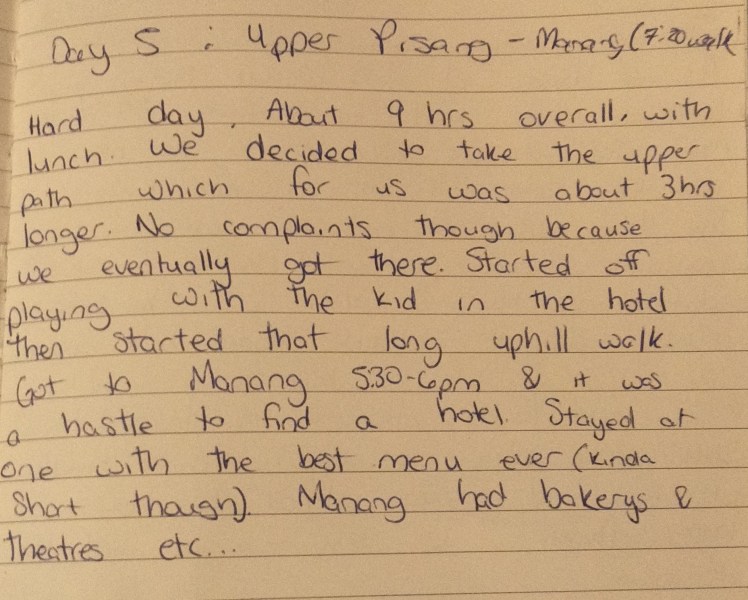 Day 5 : Upper Pisang - Manang (7:20 walk
Hard day. About 9 hrs overall, with
lunch. We decided to take the upper
path which for us was about 3hrs
longer. No complaints though because
we eventually got there. Started off
playing with the kid in the hotel
then started that long uphill walk.
Got to Manang 530-6pm & it was
a hastle to find a hotel. Stayed at
one with the best menu ever (kinda
short though). Manang had bakerys &
theatres etc...